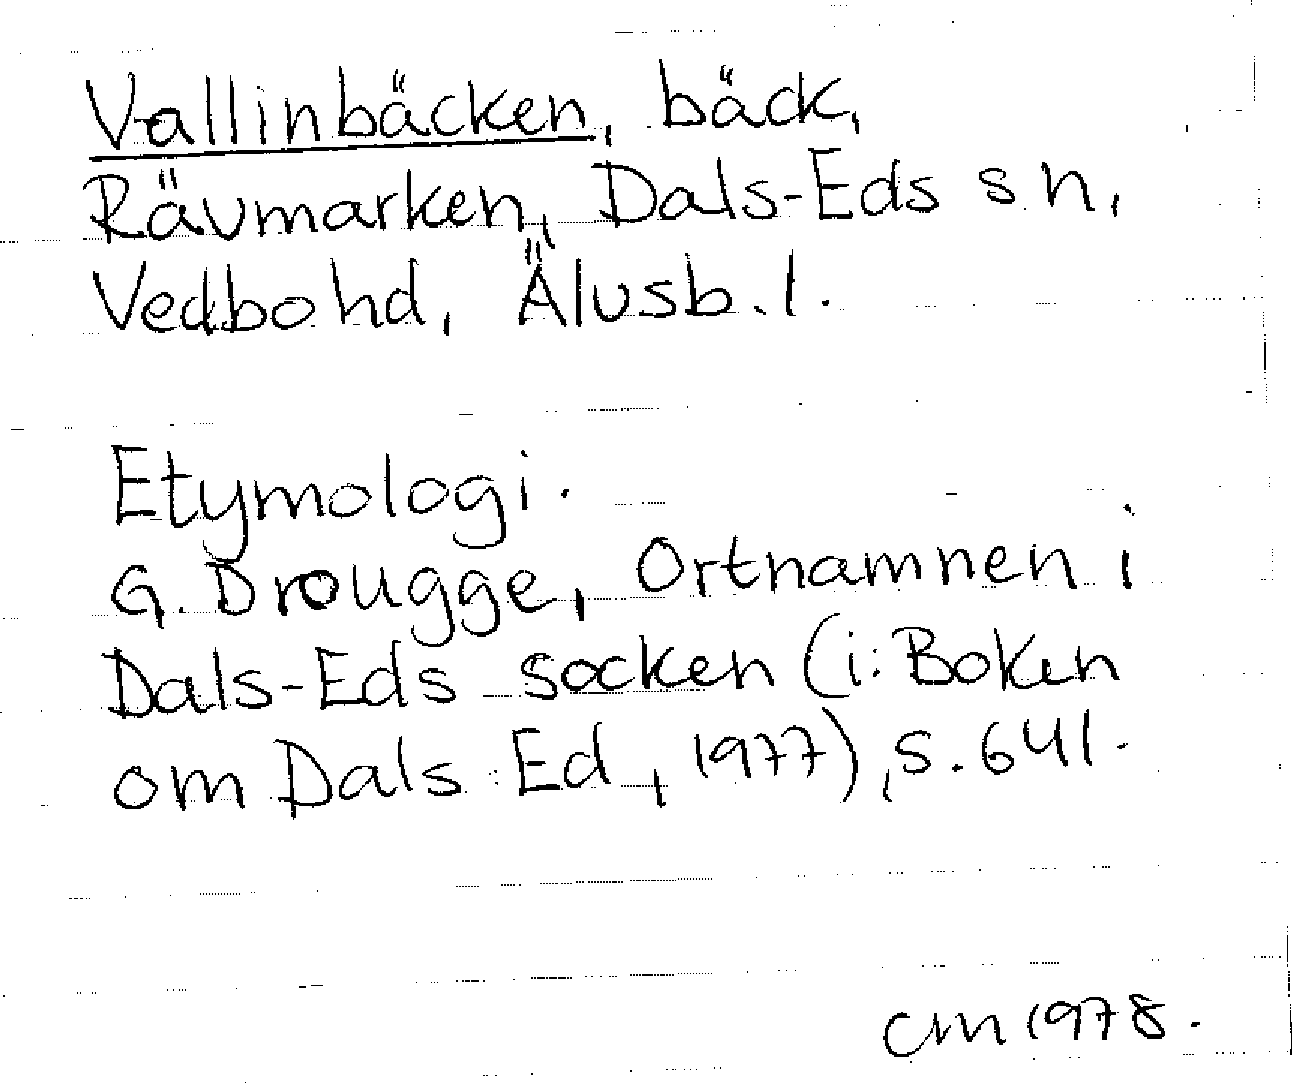 Vallinbäcken, bäck,
Rävmarken, Dals-Eds sn,
Vedbo hd, Älvsb. l.
Etymologi.
G. Drougge, Ortnamnen i
Dals-Eds socken (i: Boken
om Dals Ed, 1977), s. 641.
CM 1978.